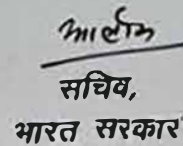 सचिव,
भारत सरकार